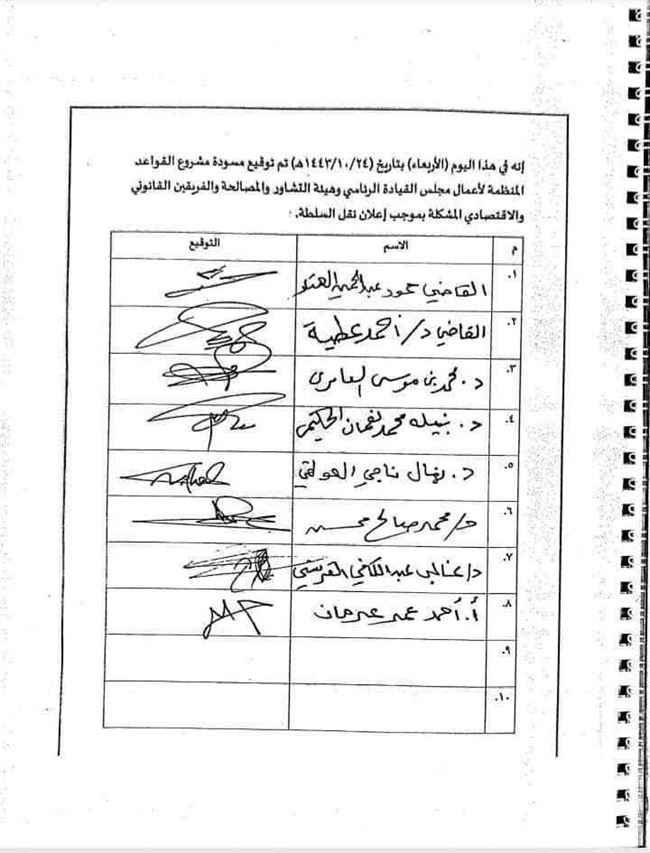 إنه في هذا اليوم (الأربعاء) بتاريخ (١٤٤٣/١٠/٢٤هـ) تم توقيع مسودة مشروع القواعد
المنظمة لأعمال مجلس القيادة الرئاسي وهيئة التشاور والمصالحة والفريقين القانوني
والاقتصادي المشكلة بموجب إعلان نقل السلطة.
م الاسم التوقيع
١. القاضي حمود عبدالحميد الهتار
٢. القاضي د/ أحمد عطية
٣. د. محمد بن موسى العامري
٤. د. نبيله محمد نعمان الحكيمي
٥. د. نهال ناجي العولقي
٦. د/ محمد صالح محسن
٧. د/ عبدالغني القرشي
٨. أ. أحمد عمير عرمان
٩.
١٠.